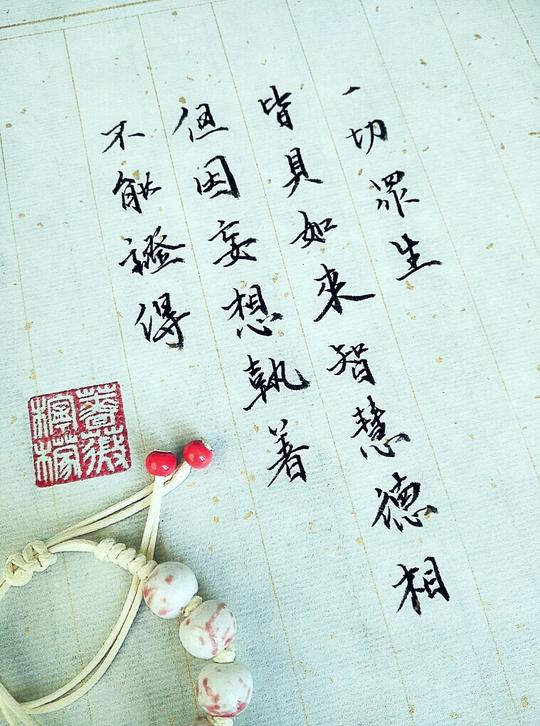 一切眾生
皆具如來智慧德相
但因妄想執著
不能證得